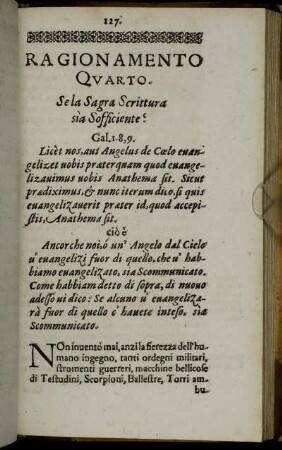 127.
RAGIONAMENTO
QVARTO.
Se la Sagra Scrittura
sia Sofficiente?
Gal. 1. 8, 9.
Licèt nos, aut Angelus de Cœlo euan-
gelizet uobis præter quam quod euange-
lizauimus uobis Anathema sit. Sicut
prædiximus, & nunc iterum dico, si quis
euangelizauerit præter id, quod accepi-
stis, Anathema sit.
ciò è
Ancorche noi, ò un' Angelo dal Cielo
u' euangelizi fuor di quello, che u' hab-
biamo euangelizato, sia Scommunicato.
Come habbiam detto di sopra, di nuouo
adesso ui dico: Se alcuno u' euangeliza-
rà fuor di quello c' hauete inteso, sia
Scommunicato.
NOn inuentò mai, anzi la fierezza dell'hu-
mano ingegno, tanti ordegni militari,
stromenti guerreri, macchine bellicose
di Testudini, Scorpioni, Ballestre, Torri am-
bu-